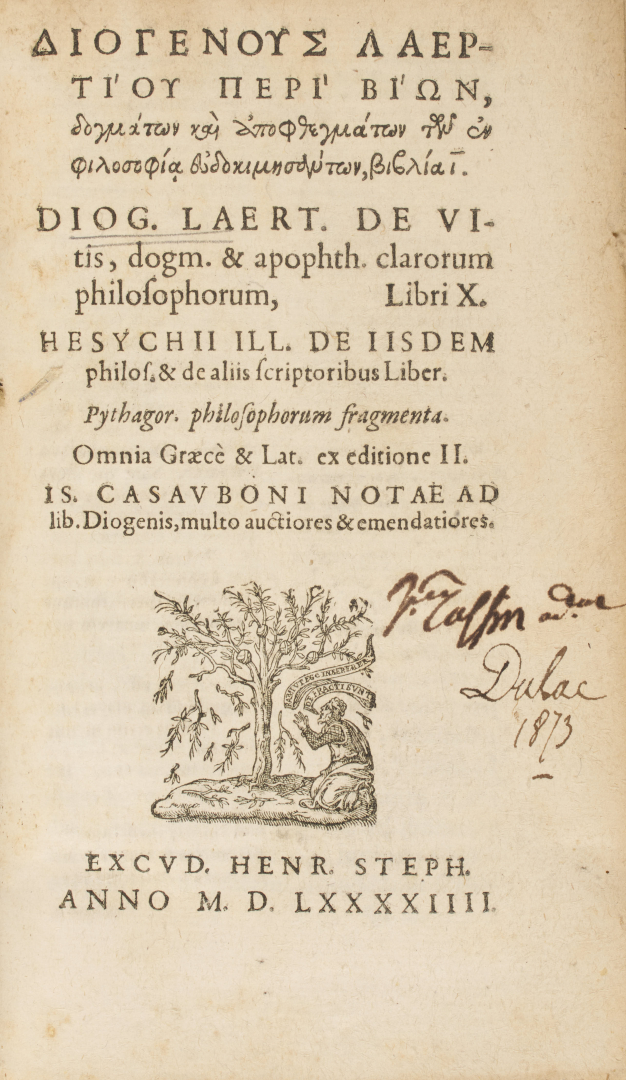 ΔΙΟΓΕΝΟΥΣ ΛΑΕΡ-
ΤΙ΄ΟΥ ΠΕΡΙ΄ ΒΙ΄ΩΝ,
δογμάτων καὶ ἀποφθεγμάτων τῶν ἐν
φιλοσοφίᾳ εὐδοκιμησάντων, βιβλία ι̅.
DIOG. LAERT. DE VI-
tis, dogm. & apophth. clarorum
philoſophorum, Libri X.
HESYCHII ILL. DE IISDEM
philoſ. & de aliis ſcriptoribus Liber.
Pythagor. philoſophorum fragmenta.
Omnia Græcè & Lat. ex editione II.
IS. CASAVBONI NOTAE AD
lib. Diogenis, multo auctiores & emendatiores.
Dulac
1873
EXCVD. HENR. STEPH.
ANNO M. D. LXXXXIIII.